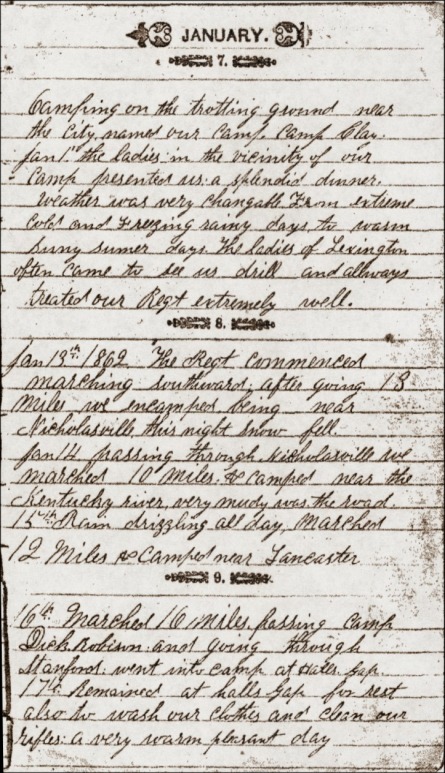 JANUARY.
7.
Camping on the trotting ground near
the City, named our Camp, Camp Clay.
Jan 1st the ladies in the vicinity of our
Camp presented us a splendid dinner.
Weather was very changable From extreme
Cold and Freezing rainy days to warm
suny sumer days. The ladies of Lexington
often came to see us drill and allways
treated our Regt extremely well.
8.
Jan 13th 1862 The Regt Commenced
marching southward, after going 13
Miles we encamped being near
Nicholasville, this night snow fell
Jan 14 passing through Nicholasville we
marched 10 Miles. & Camped near the
Kentucky river, very mudy was the road.
15th Rain drizzling all day, Marched
12 Miles & Camped near Lancaster
9.
16th Marched 16 Miles, passing Camp
Dick Robison and going through
Stanford: went into camp at Halls Gap.
17th Remained at halls Gap for rest
also to wash our clothes and clean our
rifles: a very warm pleasant day